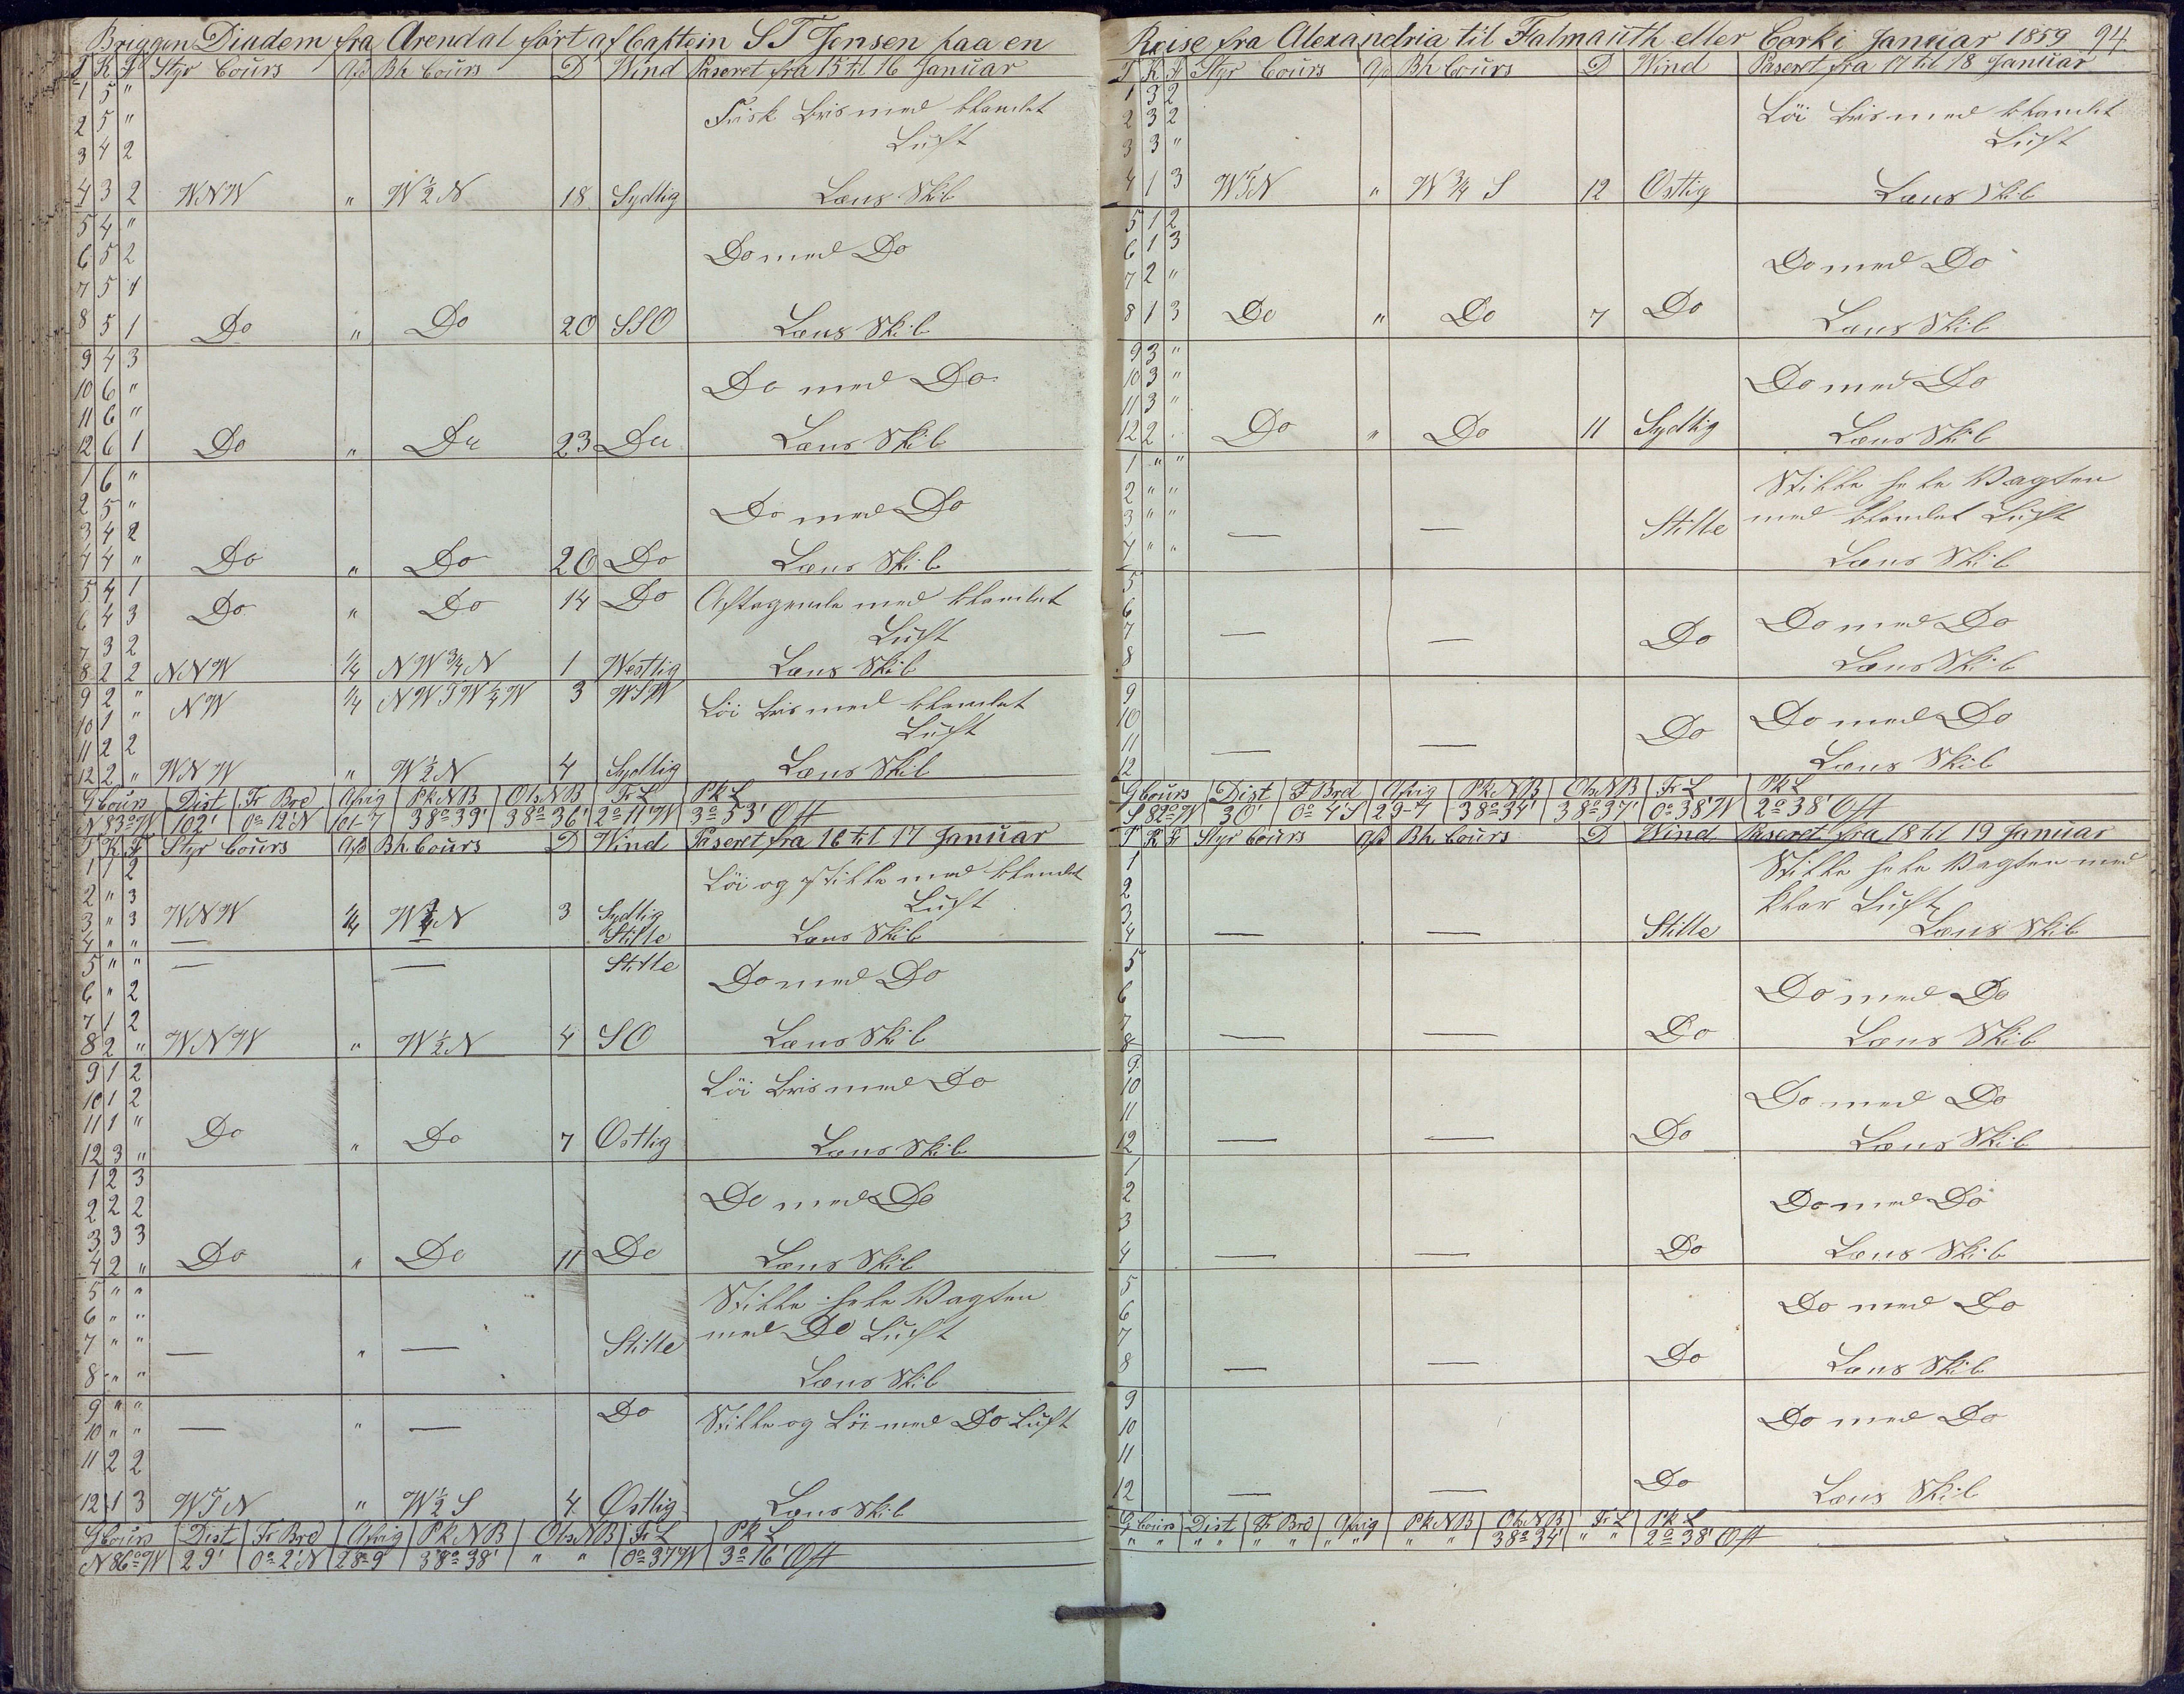 Briggen Diadem fra Arendal ført af Captein S T Jensen paa en
T K F Styr Cours Afd Bh Cours D Wind Paseret fra 15 til 16 Januar
1 5 "
2 5 " Frisk bris med blandet
3 4 2 Luft
4 3 2 WNW " W ½ N 18 Sydlig Læns Skib
5 4 "
6 5 2 Do med Do
7 5 1
8 5 1 Do " Do 20 SSO Læns Skib
9 4 3
10 6 " Do med Do
11 6 "
12 6 1 Do " Do 23 Do Læns Skib
1 6 "
2 5 " Do med Do
3 4 2
4 4 " Do " Do 20 Do Læns Skib
5 4 1
6 4 3 Do " Do 14 Do Aftagende med blandet
7 3 2 Luft
8 2 2 NNW ¼ NW ¾ N 1 Westlig Læns Skib
9 2 " NW ¼ NWTW ¼ W 3 WSW
10 1 " Löi bris med blandet
11 2 2 Luft
12 2 " WNW " W ½ N 4 Sydlig Læns Skib
G Cours Dist Fr Brd Afvig Pk NB Obs NB Fr L Pk L
N 83° W 102' 0° 12' N 101-7 38° 39' 38° 36' 2° 11' W 3° 53' Ost
T K F Styr Cours Afd Bh Cours D Wind Paseret fra 16 til 17 Januar
1 1 2 Löi og Stille med blandet
2 " 3 Luft
3 " 3 WNW ¼ W ¾ N 3 Sydlig
4 " " — — Stille Læns Skib
5 " " — — Stille
6 " 2 Do med Do
7 1 2
8 2 " WNW " W ½ N 4 SO Læns Skib
9 1 2 Löi bris med Do
10 1 2
11 1 " Do " Do 7 Ostlig
12 3 " Læns Skib
1 2 3
2 2 2 Do med Do
3 3 3
4 2 " Do " Do 11 Do Læns Skib
5 " " Stille hele Vagten
6 " " med Do Luft
7 " " — " — Stille
8 " " Læns Skib
9 " " Do
10 " " — " — Stille og Löi med Do Luft
11 2 2
12 1 3 WTN " W ½ S 4 Ostlig Læns Skib
G Cours Dist Fr Brd Afvig Pk NB Obs NB Fr L Pk L
N 86° W 29' 0° 2' N 28-9 38° 38' " " 0° 37' W 3° 16' Ost
Reise fra Alexandria til Falmauth eller Cork i Januar 1859 94
T K F Styr Cours Afd Bh Cours D Wind Paseret fra 17 til 18 Januar
1 3 2
2 3 2 Löi bris med blandet
3 3 " Luft
4 1 3 WTN " W ¾ S 12 Ostlig Læns Skib
5 1 2
6 1 3 Do med Do
7 2 "
8 1 3 Do " Do 7 Do Læns Skib
9 3 "
10 3 " Do med Do
11 3 "
12 2 . Do " Do 11 Sydlig Læns Skib
1 " " Stille hele Vagten
2 " " med blandet Luft
3 " " — — Stille
4 " " Læns Skib
5
6 Do med Do
7 — — Do
8 Læns Skib
9
10 Do med Do
11 — — Do
12 Læns Skib
G Cours Dist F Brd Afvig Pk NB Obs NB Fr L Pk L
S 82° W 30' 0° 4' S 29-7 38° 34' 38° 37' 0° 38' W 2° 38' Ost
T K F Styr Cours Afd Bh Cours D Wind Paseret fra 18 til 19 Januar
1 Stille hele Vagten med
2 klar Luft
3
4 — — Stille Læns Skib
5
6 Do med Do
7
8 — — Do Læns Skib
9
10 Do med Do
11
12 — — Do Læns Skib
1
2 Do med Do
3
4 — — Do Læns Skib
5
6 Do med Do
7
8 — — Do Læns Skib
9
10 Do med Do
11
12 — — Do Læns Skib
G Cours Dist Fr Brd Afvig Pk NB Obs NB Fr L Pk L
" " " " " " " " " " 38° 34' " " 2° 38' Ost